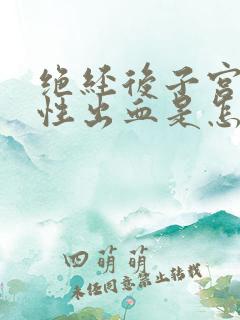 绝经后子宫
性出血是怎
四萌萌
未经同意禁止转载